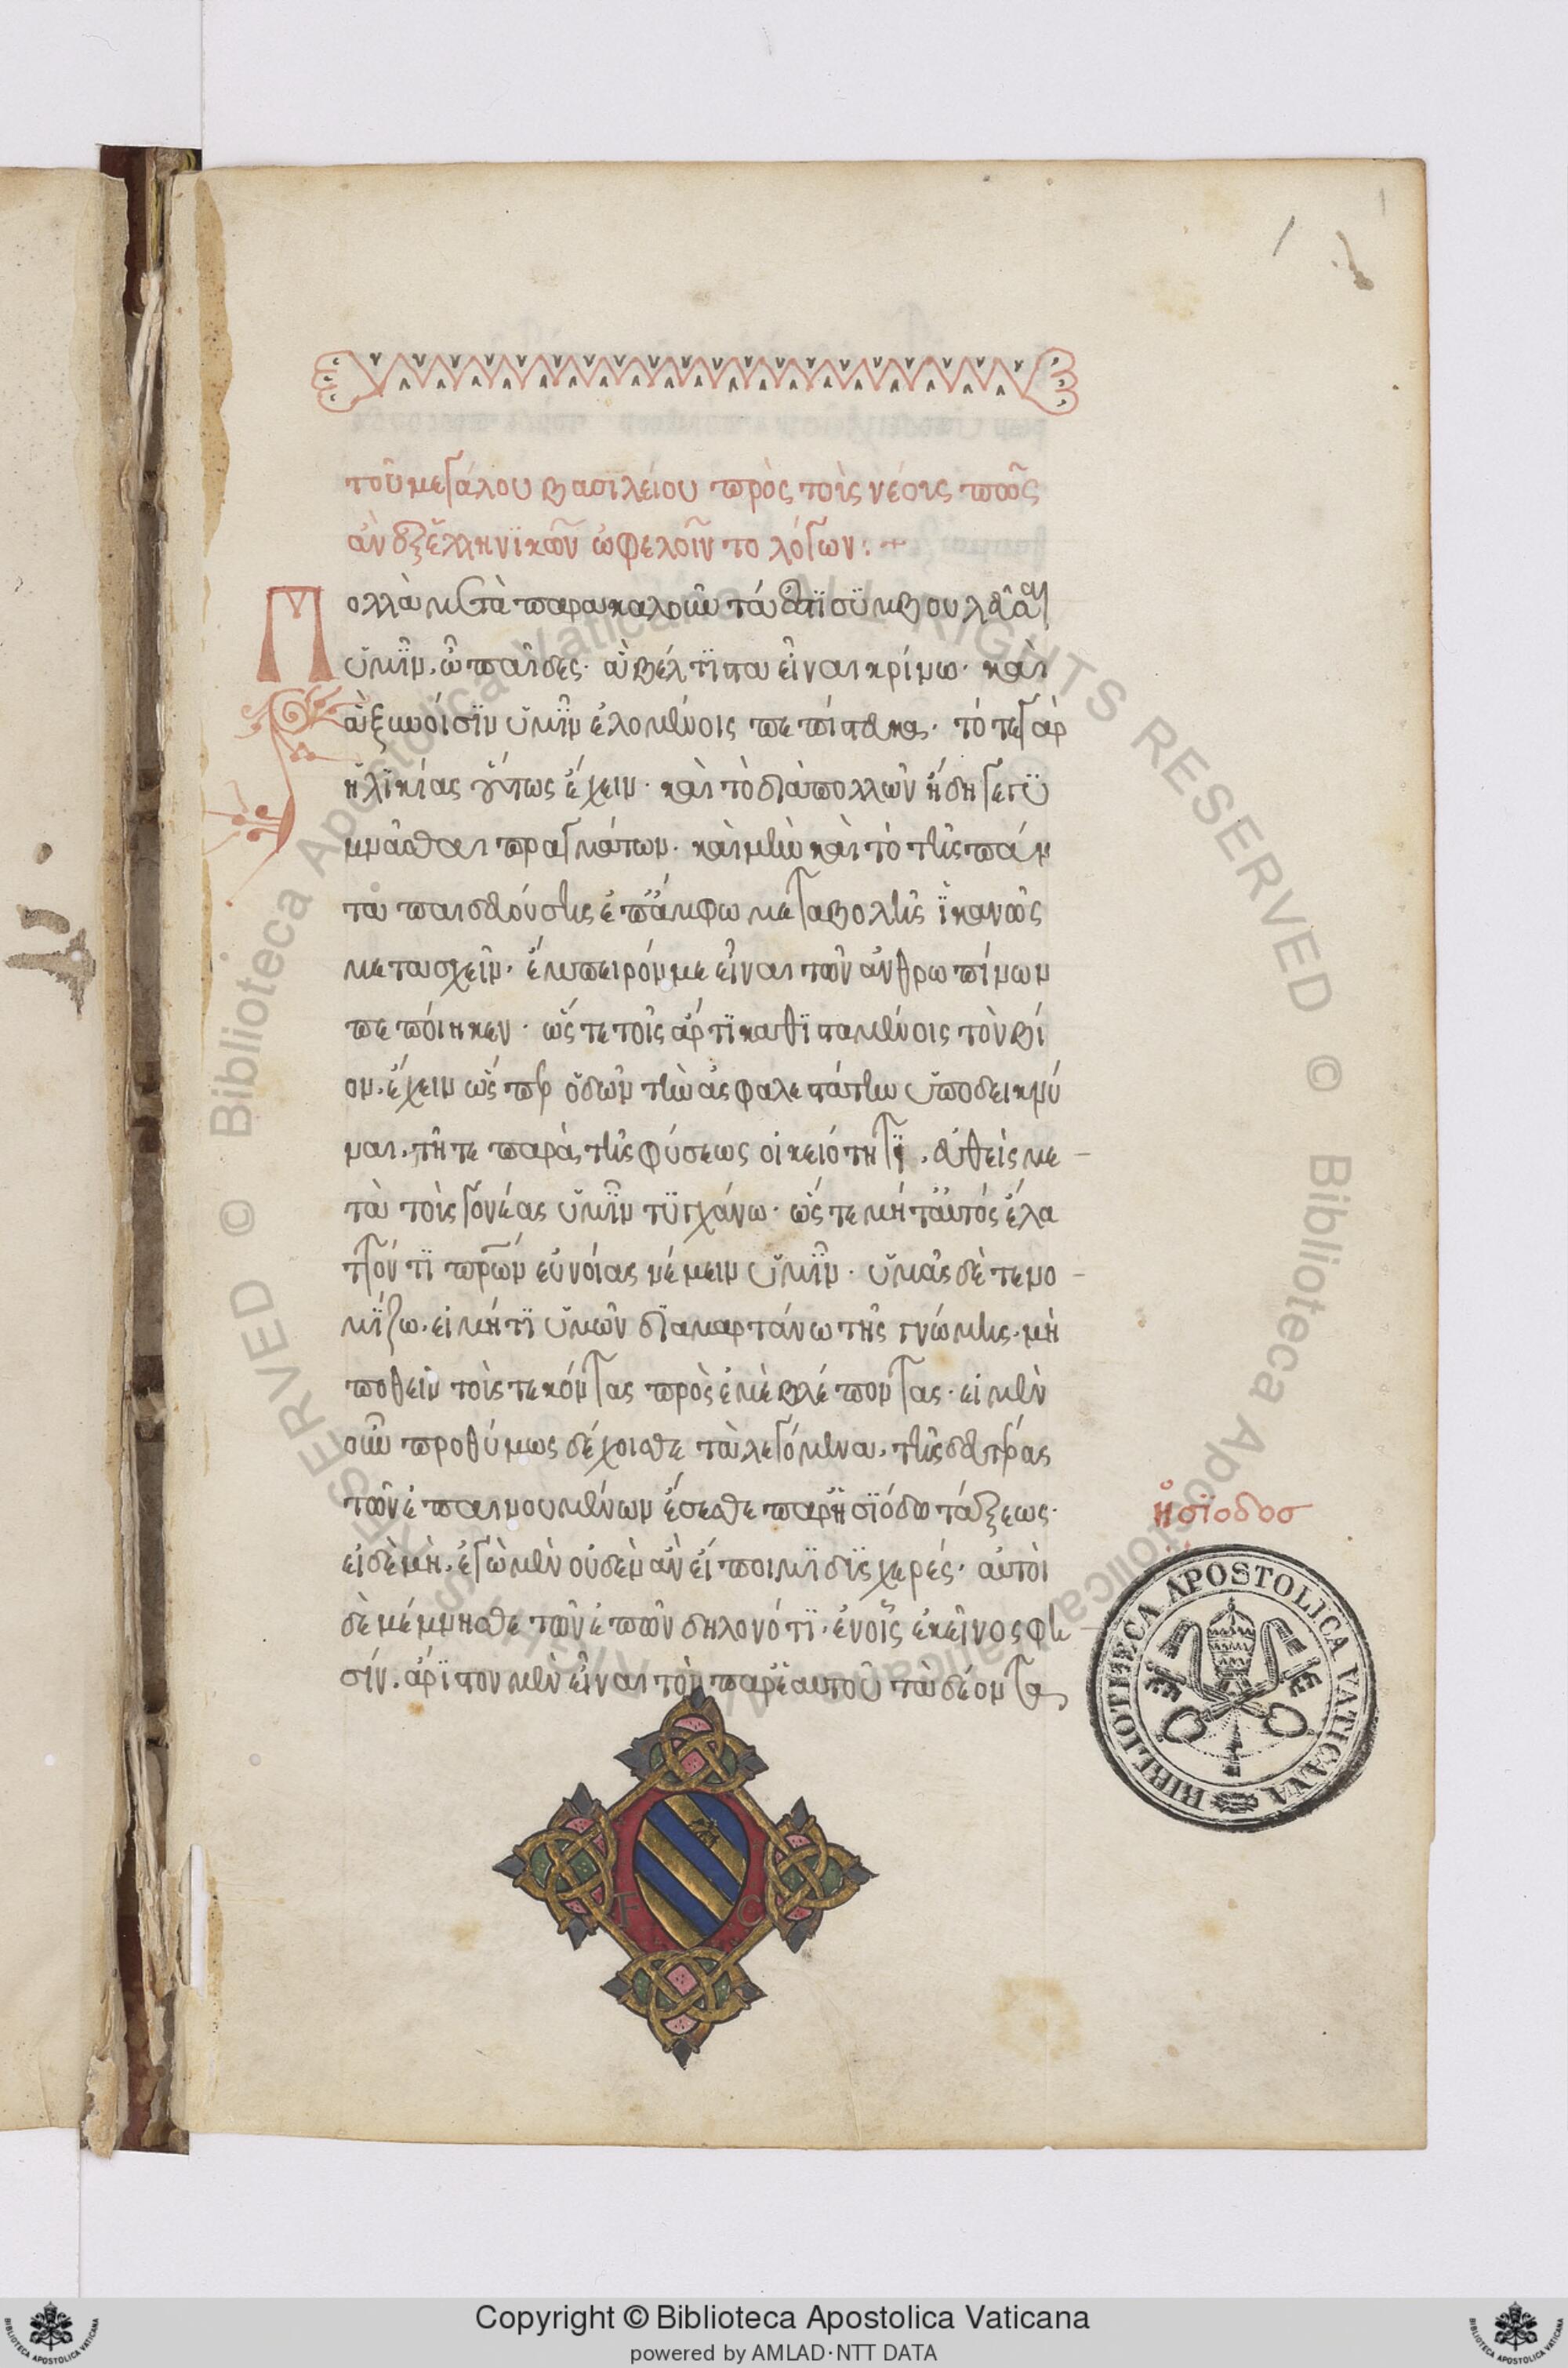 τοῦ μεγάλου βασιλείου πρὸς τοὺς νέους πῶς
ἀν ἐξ ἑλληνϊκῶν ὠφελοῖντο λόγων:+
Πολλά με τὰ παρακαλοῦντά ἐστϊ συμβουλεῦσαι
ὑμῖν, ὦ παῖδες· ἃ βέλτϊστα εἶναι κρίνω· καὶ
ἃ ξυνοίσϊν ὑμῖν ἑλομένοις πεπίστευκα· τό τε γὰρ
ἡλϊκίας οὕτως ἔχειν· καὶ τὸ διὰ πολλῶν ἤδη γεγυ
μνᾶσθαι πραγμάτων· καὶ μὴν καὶ τὸ τῆς πάν
τα παιδευούσης ἐπ' ἄμφω μεταβολῆς ἱκανῶς
μετασχεῖν· ἔμπειρόν με εἶναι τῶν ἀνθρωπίνων
πεπόιηκεν· ὥς τε τοῖς ἄρτϊ καθϊσταμένοις τὸν βί
ον, ἔχειν ὥς περ ὁδῶν τὴν ἀσφαλεστάτην ὑποδεικνύ
ναι, τῆ τε παρὰ τῆς φύσεως οἰκειότητϊ, εὐθὺς με
τὰ τοὺς γονέας ὑμῖν τυγχάνω· ὥς τε μήτ' αὐτός ἔλα
ττόν τϊ πατέρων εὐνοίας νέμειν ὑμῖν· ὑμᾶς δὲ τε νο
μίζω, εἰ μή τϊ ὑμῶν δϊαμαρτάνω τῆς γνώμης, μὴ
ποθεῖν τοὺς τεκόντας πρὸς ἐμὲ βλέποντας· εἰ μὲν
οὖν προθύμως δέχοισθε τὰ λεγόμενα, τῆς δευτέρας
τῶν ἐπαινουμένων ἔσεσθε παρ' ἡσϊόδω τάξεως·
εἰ δὲ μὴ, ἐγὼ μὲν οὐδὲν ἂν εἴποιμϊ δϊσχερές· αὐτοὶ
δὲ μέμνησθε τῶν ἐπῶν δηλονότϊ, ἐν οἷς ἐκεῖνος φη
σίν, ἄρϊστον μὲν εἶναι τὸν παρ' ἑαυτοῦ τὰ δέοντα
ἡσϊοδοσ
BIBLIOTHECA APOSTOLICA VATICANA
F C
1
© Biblioteca Apostolica Vaticana ALL RIGHTS RESERVED
Copyright © Biblioteca Apostolica Vaticana
powered by AMLAD·NTT DATA
BIBLIOTECA APOSTOLICA VATICANA
BIBLIOTECA APOSTOLICA VATICANA